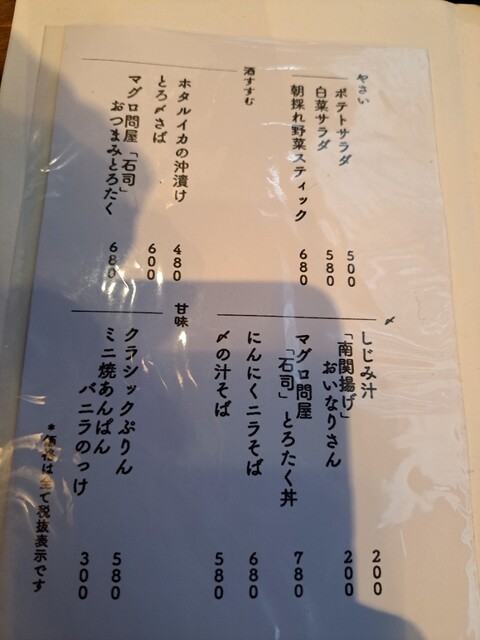 やさい
ポテトサラダ 500
白菜サラダ 580
朝採れ野菜スティック 680
酒すすむ
ホタルイカの沖漬け 480
とろ〆さば 600
マグロ問屋「石司」
おつまみとろたく 680
〆
しじみ汁 200
「南関揚げ」
おいなりさん 200
マグロ問屋
「石司」とろたく丼 780
にんにくニラそば 680
〆の汁そば 580
甘味
クラシックぷりん 580
ミニ焼あんぱん
バニラのっけ 300
*価格は全て税抜表示です